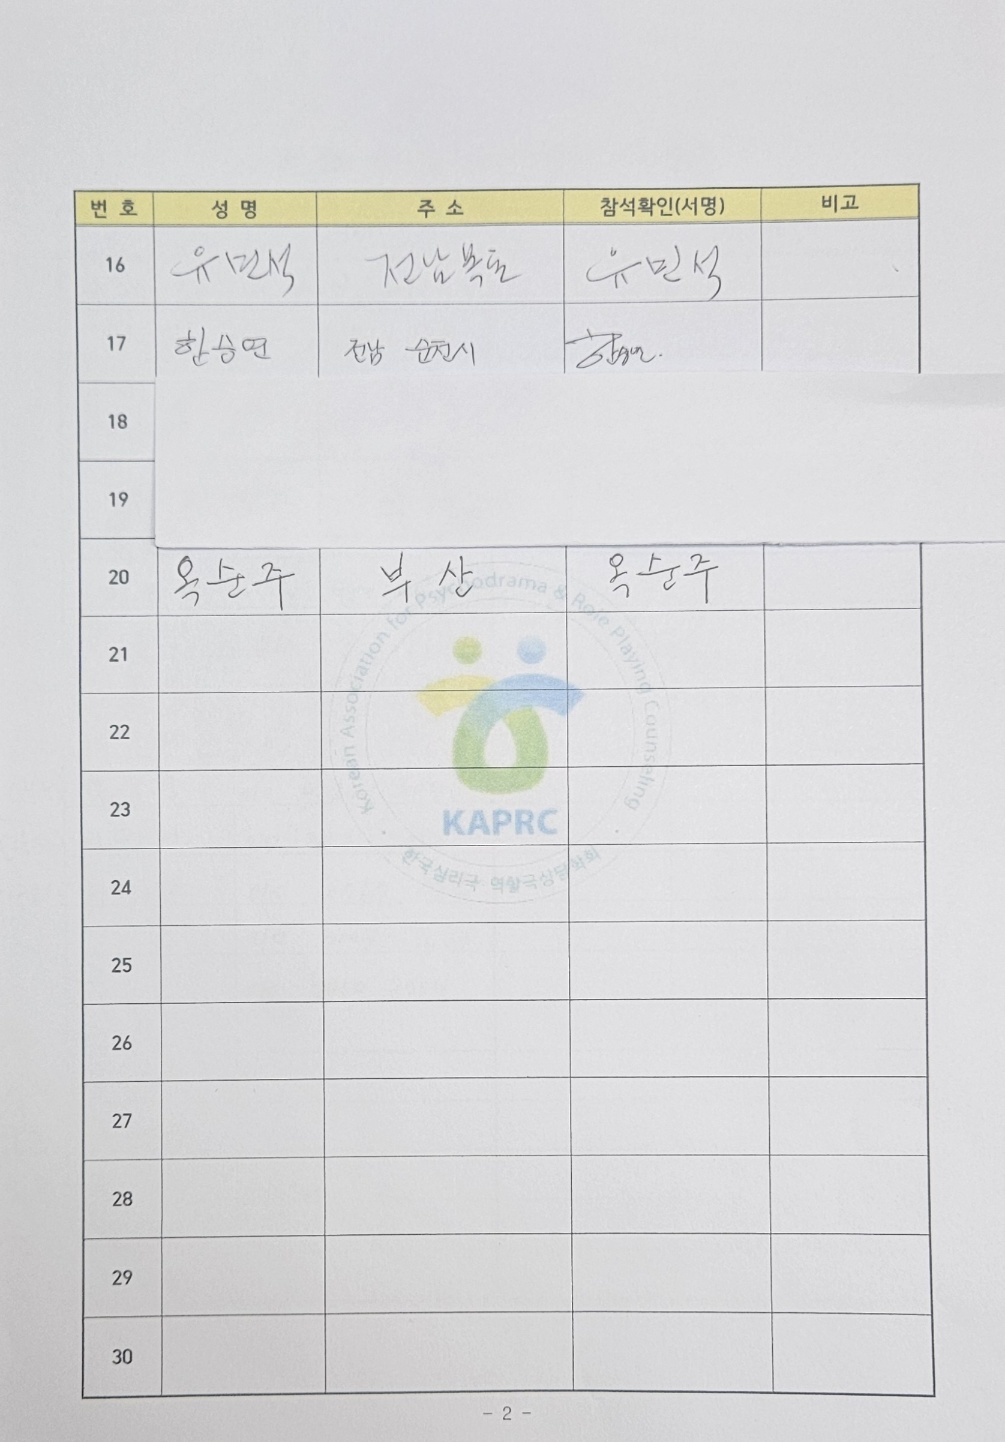 번 호 성 명 주 소 참석확인(서명) 비고
16 유민석 전남 목포 유민석
17 한승연 전남 순천시 한승연
18
19
20 옥순주 부 산 옥순주
21
22
23
24
25
26
27
28
29
30
Korean Association for Psychodrama & Role Playing Counseling
KAPRC
한국심리극 역할극상담학회
- 2 -